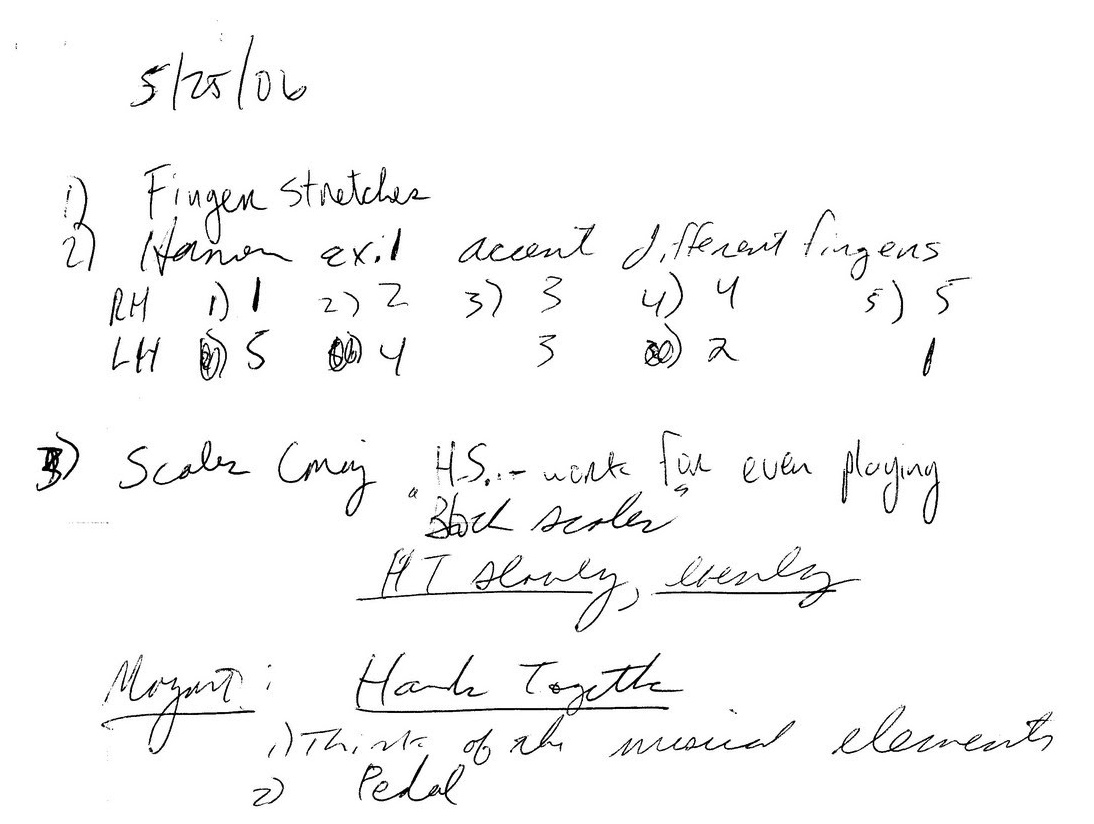 5/25/06
1) Finger stretches
2) Hanon ex.1 accent different fingers
RH 1) 1 2) 2 3) 3 4) 4 5) 5
LH 5 4 3 2 1
3) Scales H.S. - work for even playing
Block scales
HT slowly, evenly
Mozart: Hands Together
1) Think of the musical elements
2) Pedal